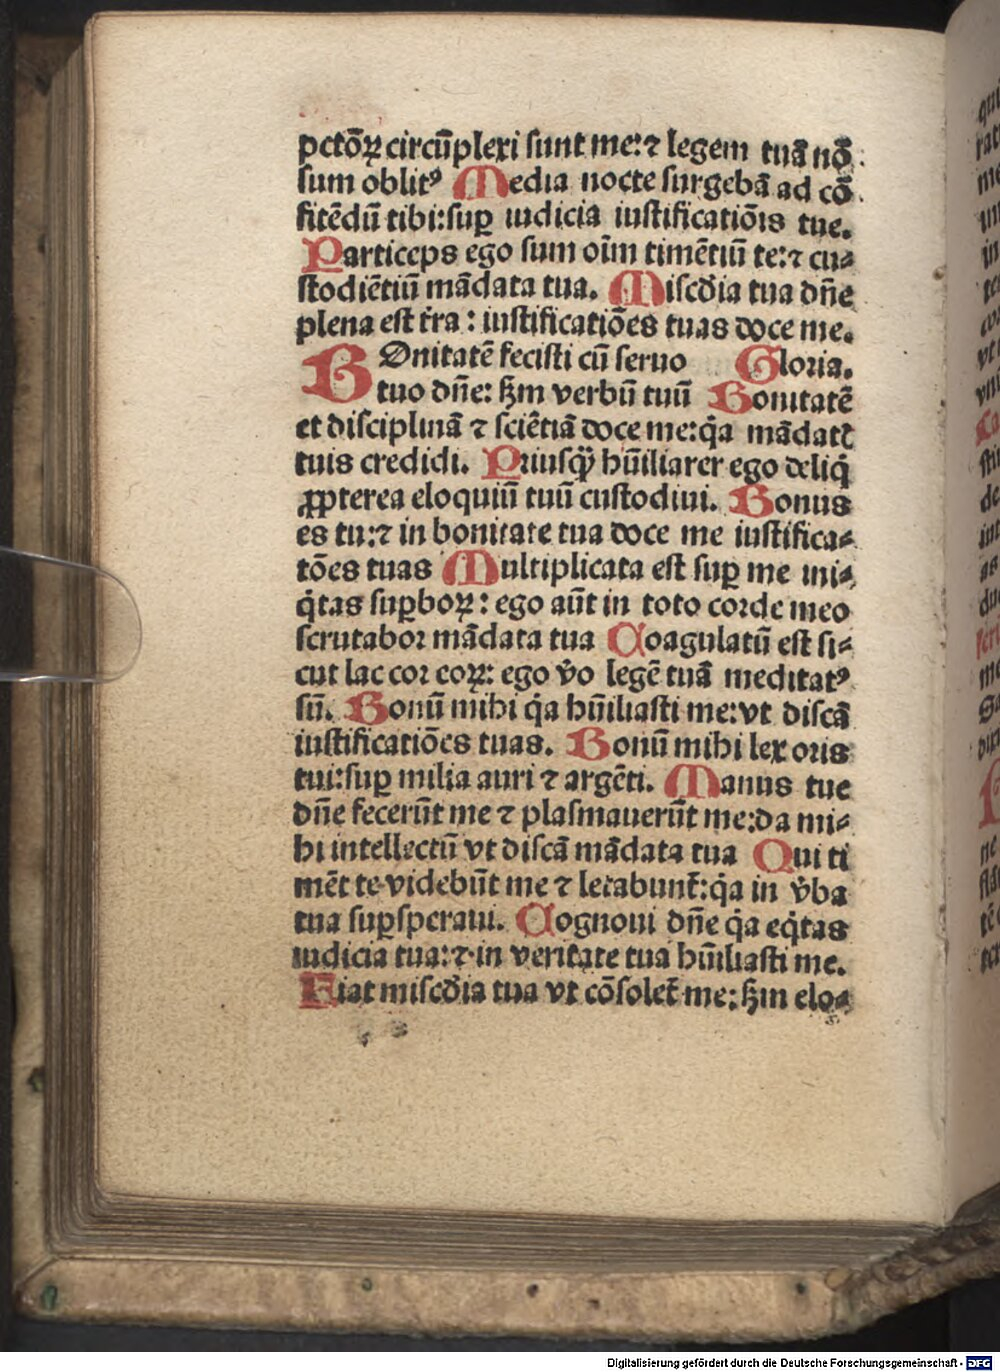 pctōꝝ circūplexi sunt me:⁊ legem tuā nō
sum oblitꝰ Media nocte surgebā ad cō
fitēdū tibi:suꝑ iudicia iustificatiōis tue.
Particeps ego sum oīm timētiū te:⁊ cu⸗
stodiētiū mādata tua. Miscd̄ia tua dn̄e
plena est t̄ra : iustificatiōes tuas doce me.
BOnitatē fecisti cū seruo Gloria.
tuo dn̄e: ẜm verbū tuū Bonitatē
et disciplinā ⁊ sciētiā doce me:q̄a mādatꝭ
tuis credidi. Priusq̄ꝫ hūiliarer ego deliq̄
ꝓpterea eloquiū tuū custodiui. Bonus
es tu:⁊ in bonitate tua doce me iustifica⸗
tōes tuas Multiplicata est suꝑ me ini⸗
q̇tas suꝑboꝝ: ego aūt in toto corde meo
scrutabor mādata tua Coagulatū est si⸗
cut lac cor eoꝝ: ego v̄o legē tuā meditatꝰ
sū. Bonū mihi q̄a hūiliasti me:vt discā
iustificatiōes tuas. Bonū mihi lex oris
tui:suꝑ milia auri ⁊ argēti. Manus tue
dn̄e fecerūt me ⁊ plasmauerūt me:da mi⸗
hi intellectū vt discā mādata tua Qui ti
mēt te videbūt me ⁊ letabunt̄:q̄a in v̄ba
tua suꝑsperaui. Cognoui dn̄e q̄a eq̇tas
iudicia tua:⁊ in veritate tua hūiliasti me.
Fiat miscd̄ia tua vt cōsolet̄ me: ẜm elo⸗
Digitalisierung gefördert durch die Deutsche Forschungsgemeinschaft - DFG